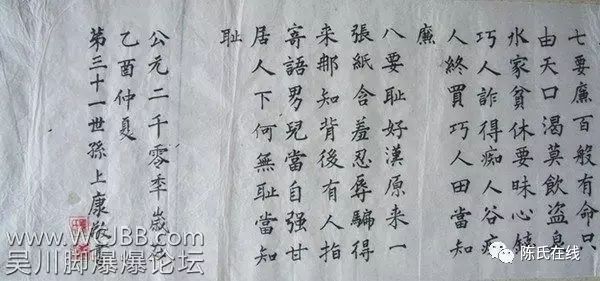 七要廉百般有命只
由天口渴莫飲盜泉
水家貧休要昧心錢
巧人詐得痴人谷痴
人終買巧人田當知
廉
八要耻好漢原来一
張紙含羞忍辱騙得
来那知背後有人指
寄語男兒當自强甘
居人下何無耻當知
耻
公元二千零季歲次
乙酉仲夏
第三十一世孫上康
WWW.WCJBB.COM
吴川脚爆爆论坛
陈氏在线